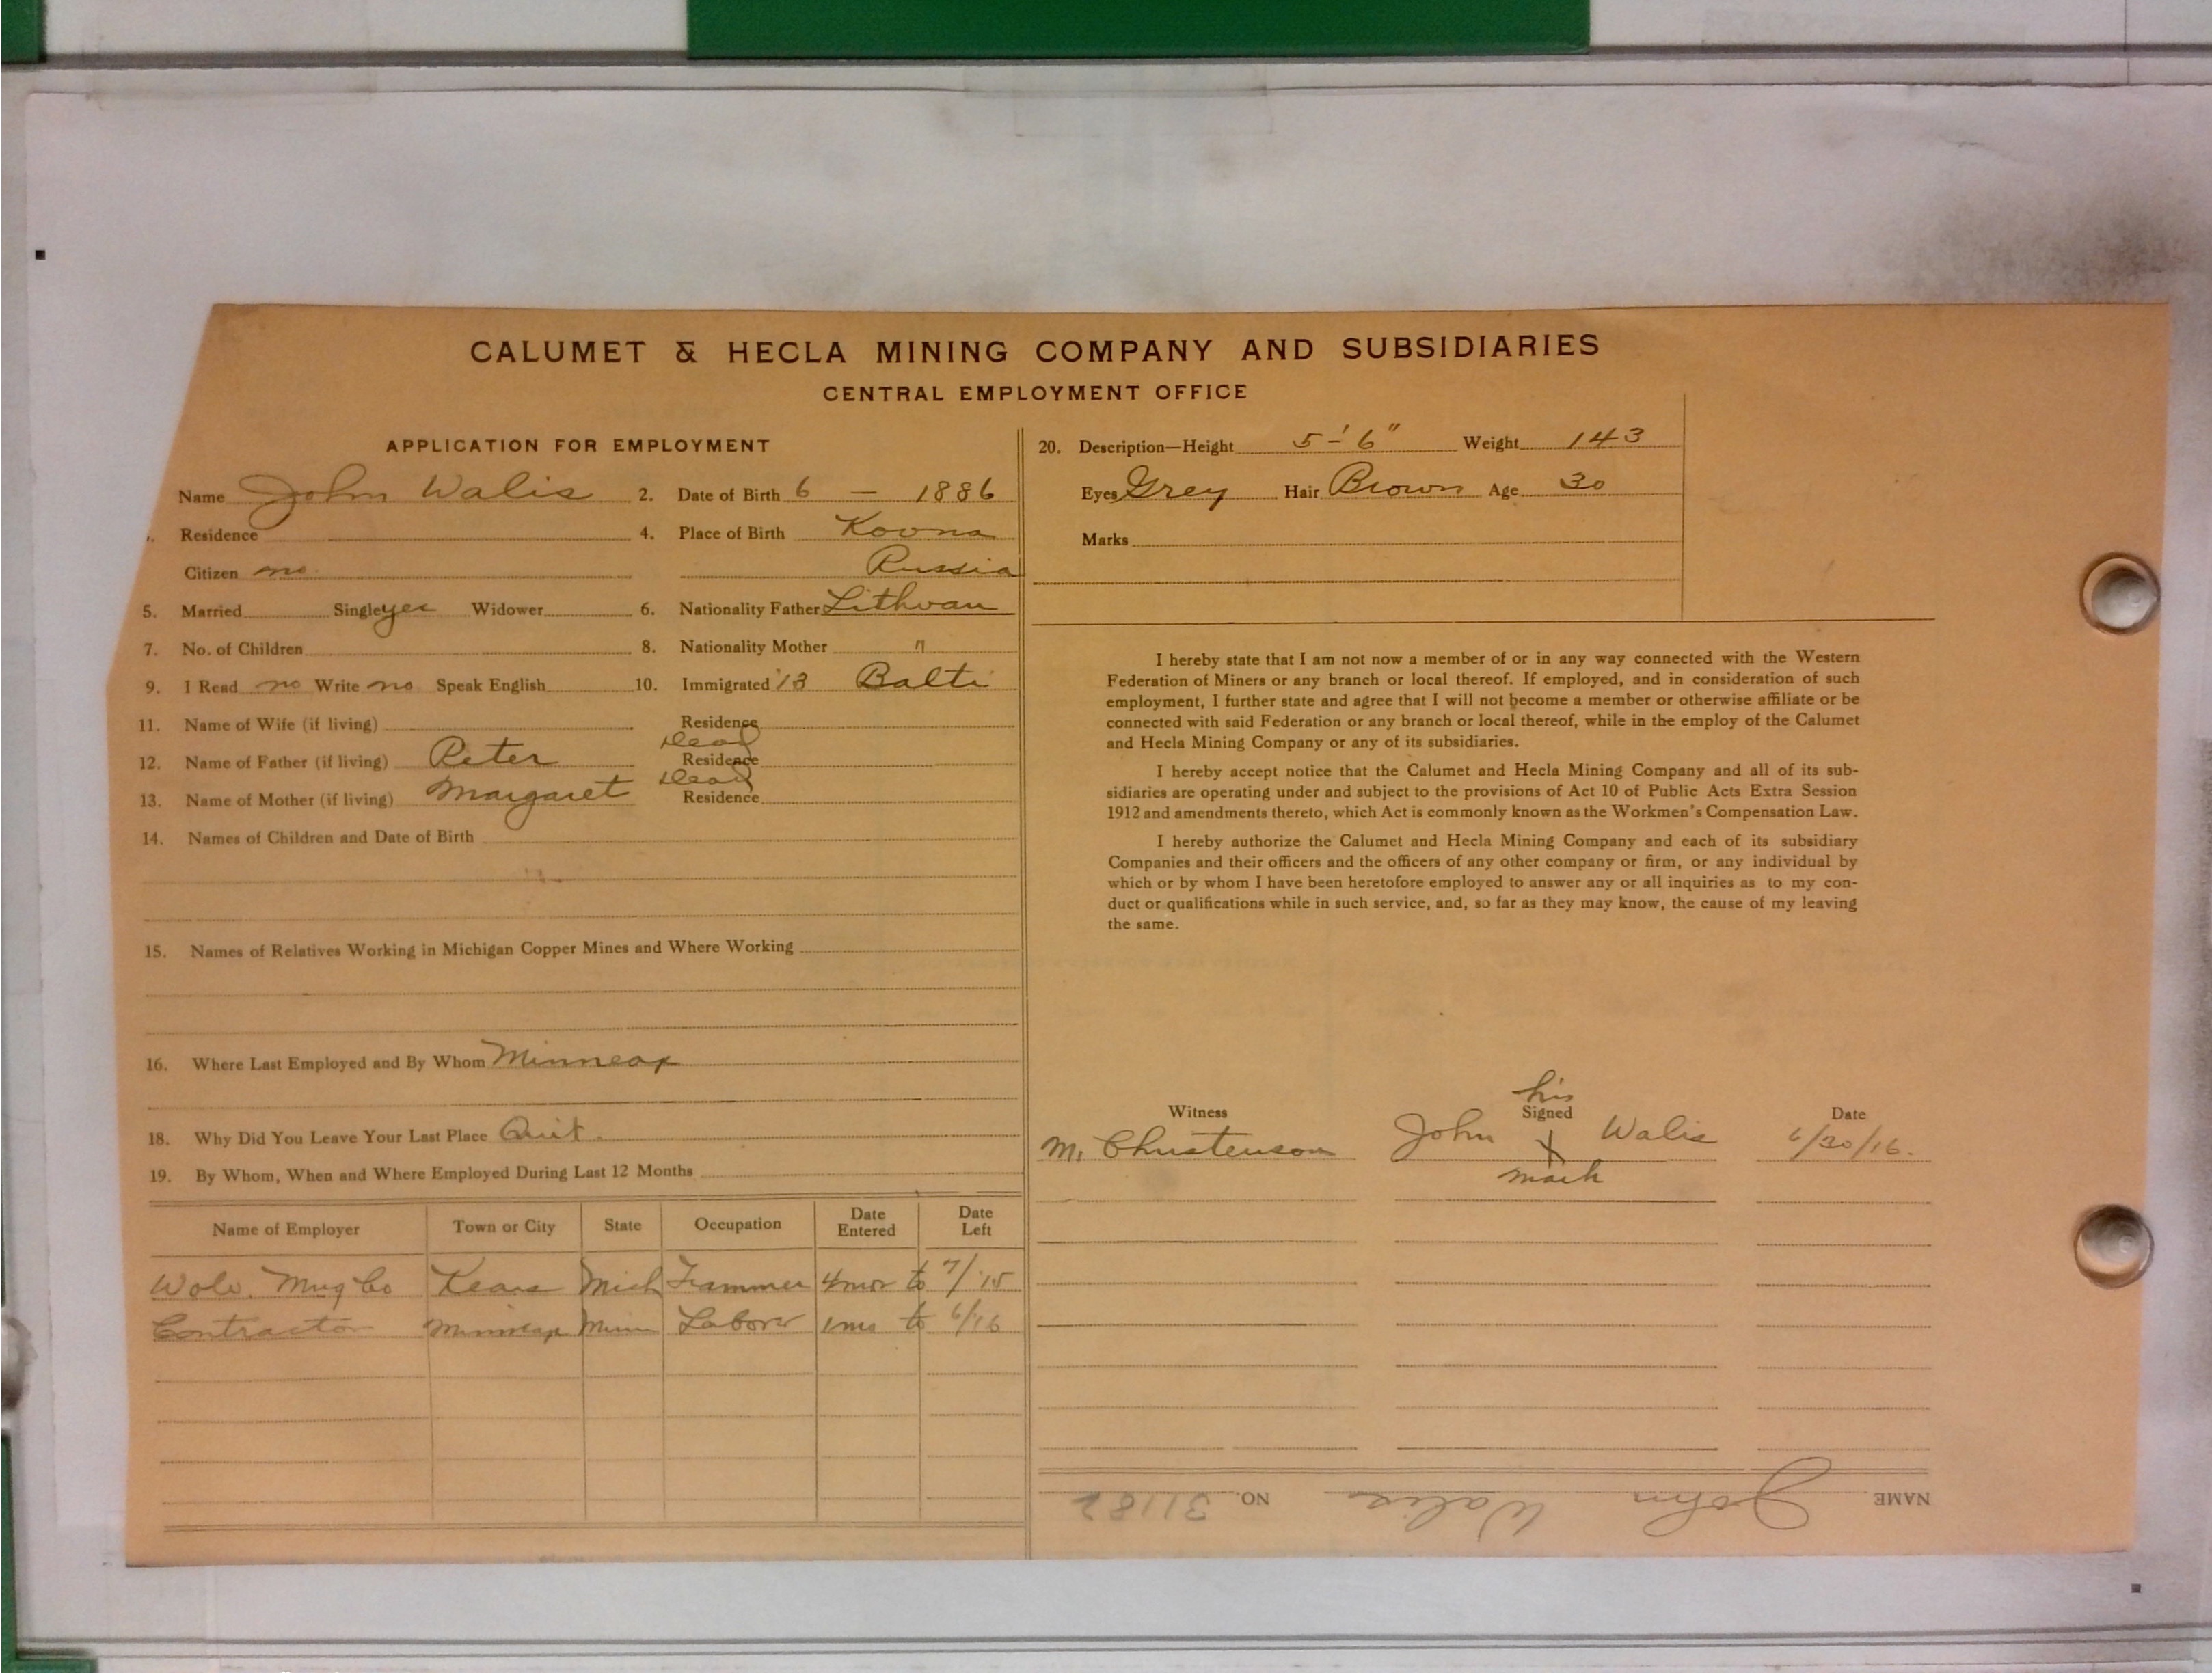 CALUMET & HECLA MINING COMPANY AND SUBSIDIARIES
CENTRAL EMPLOYMENT OFFICE
APPLICATION FOR EMPLOYMENT
Name John Walis 2. Date of Birth 6 — 1886
Residence 4. Place of Birth Kovna
Citizen no Russia
5. Married Single yes Widower 6. Nationality Father Lithvan
7. No. of Children 8. Nationality Mother "
9. I Read no Write no Speak English 10. Immigrated '13 Balti
11. Name of Wife (if living) Residence
12. Name of Father (if living) Peter Dead Residence
13. Name of Mother (if living) Margaret Dead Residence
14. Names of Children and Date of Birth
15. Names of Relatives Working in Michigan Copper Mines and Where Working
16. Where Last Employed and By Whom Minneap
18. Why Did You Leave Your Last Place Quit.
19. By Whom, When and Where Employed During Last 12 Months
Name of Employer Town or City State Occupation Date Entered Date Left
Wolv. Mng Co Kears Mich Trammer 4mos to 7/15
Contractor Minneap Minn Labor 1mo to 6/16
20. Description—Height 5-'6" Weight 143
Eyes Grey Hair Brown Age 30
Marks
I hereby state that I am not now a member of or in any way connected with the Western
Federation of Miners or any branch or local thereof. If employed, and in consideration of such
employment, I further state and agree that I will not become a member or otherwise affiliate or be
connected with said Federation or any branch or local thereof, while in the employ of the Calumet
and Hecla Mining Company or any of its subsidiaries.
I hereby accept notice that the Calumet and Hecla Mining Company and all of its sub-
sidiaries are operating under and subject to the provisions of Act 10 of Public Acts Extra Session
1912 and amendments thereto, which Act is commonly known as the Workmen's Compensation Law.
I hereby authorize the Calumet and Hecla Mining Company and each of its subsidiary
Companies and their officers and the officers of any other company or firm, or any individual by
which or by whom I have been heretofore employed to answer any or all inquiries as to my con-
duct or qualifications while in such service, and, so far as they may know, the cause of my leaving
the same.
Witness Signed Date
his
M. Christenson John X Walis 6/30/16.
mark
NAME John Walis NO. 31182